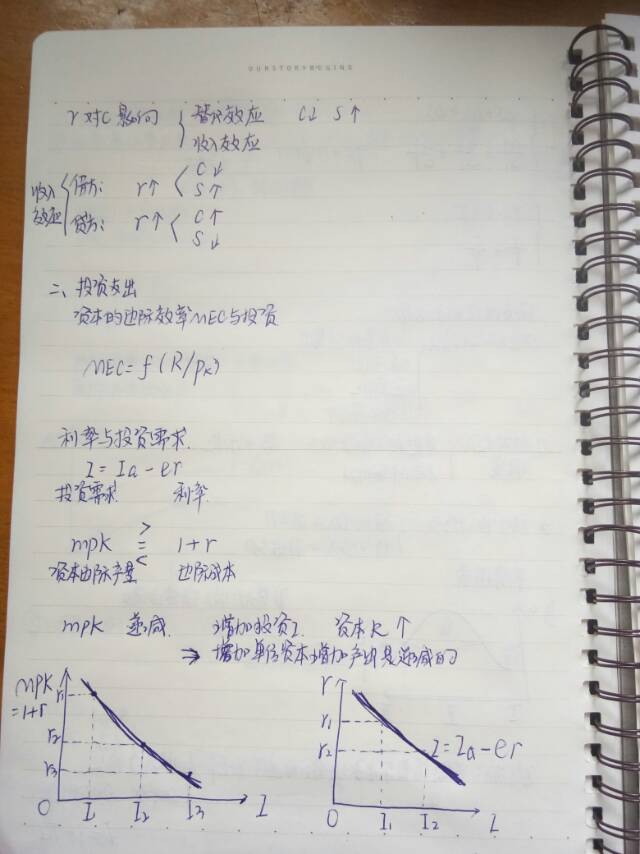 r对C影响 替代效应 C↓ S↑
收入效应
收入效应 借方: r↑ C↓ S↑
贷方: r↑ C↑ S↓
二、投资支出
资本的边际效率MEC与投资
MEC=f(R/Pk)
利率与投资需求.
I=Ia-er
投资需求 利率
mpk >=< 1+r
资本边际产量 边际成本
mpk 递减. 增加投资I. 资本K↑
⇒ 增加单位资本增加产出是递减的
MPK=1+r
r1
r2
r3
O I1 I2 I3 I
r
r1
r2
I=Ia-er
O I1 I2 I